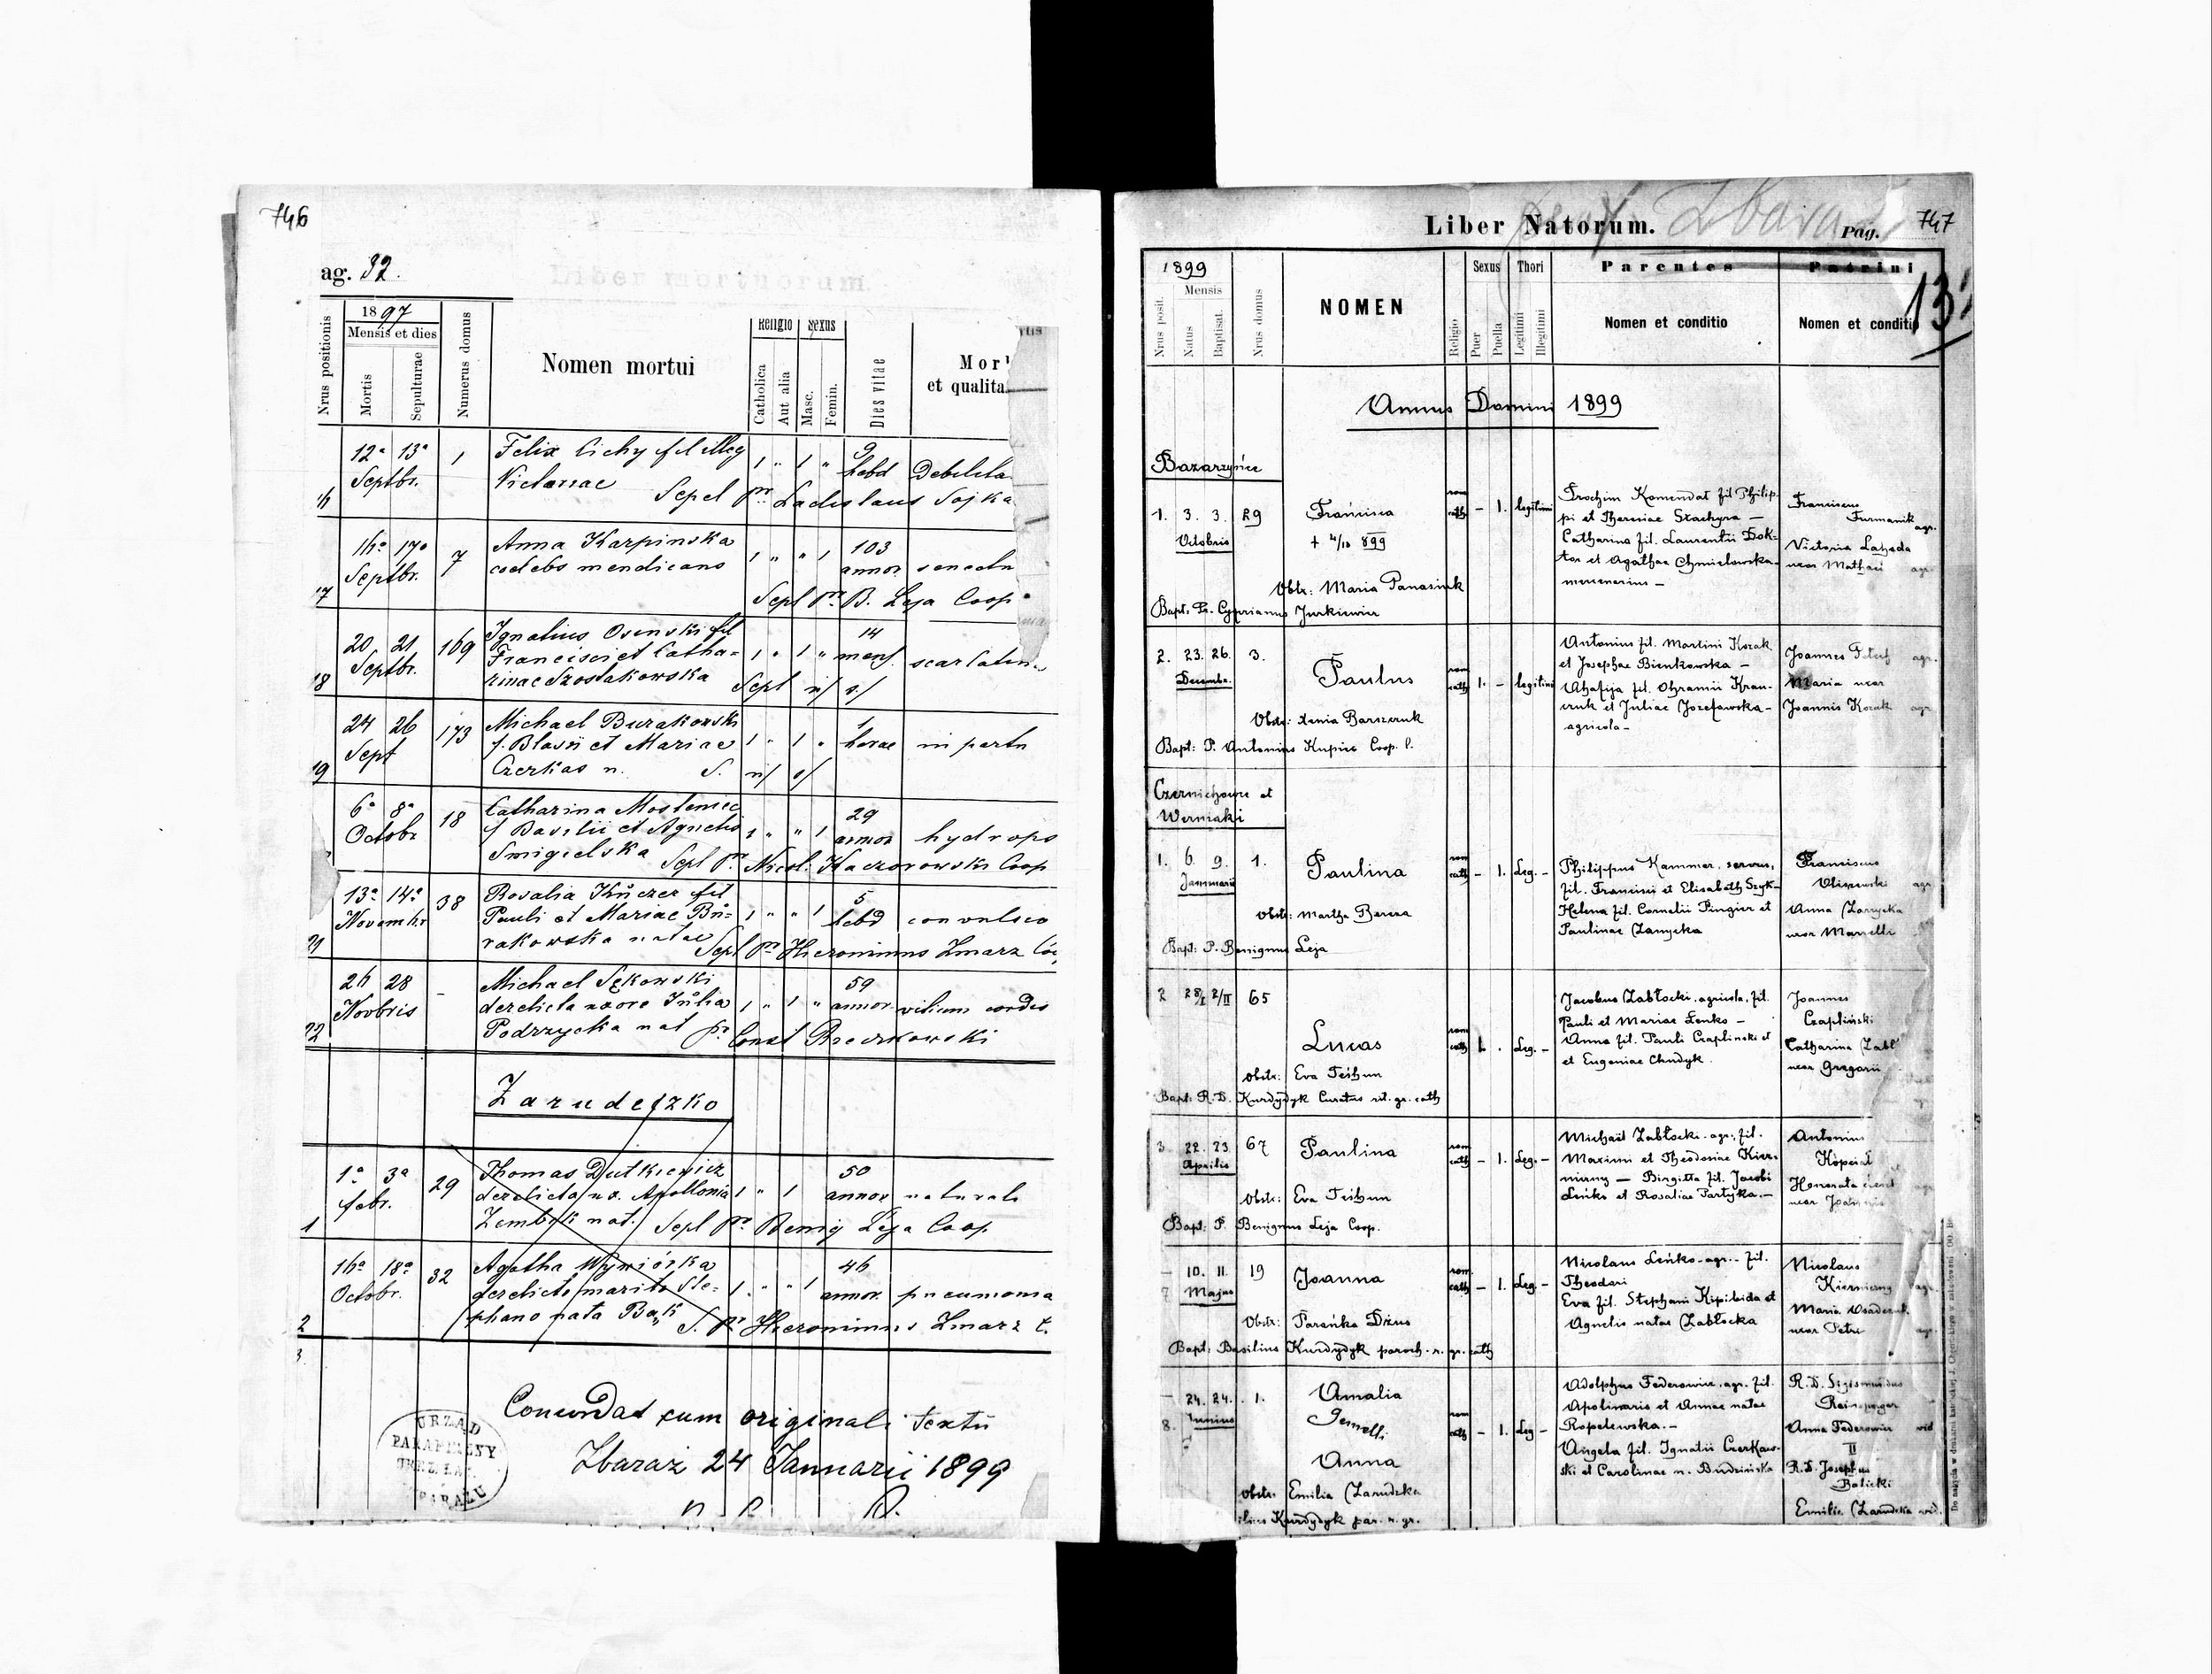 746
ag. 32.
Liber mortuorum.
Nrus positionis
1897
Mensis et dies
Mortis
Sepulturae
Numerus domus
Nomen mortui
Religio
Catholica
Aut alia
Sexus
Masc.
Femin.
Dies vitae
Mor
et qualita
16 12a 13a 1 Felix Cichy fil illeg 1 " 1 " 9
Septbr. Victoriae hebd Debilita
Sepel pr. Ladislaus Sojka
17 16a 17a 7 Anna Karpinska 1 " " 1 103
Septbr. coelebs mendicans annor senectu
Sepl pr. B. Leja Coop
18 20 21 169 Ignatius Osinski fil 1 " 1 " 14
Septbr. Francisci et Catha= mens scarlatin
rinae Szostakowska Sepl n/ s/
19 24 26 173 Michael Burakowski 1 " 1 " 1
Sept f. Blasii et Mariae horae in partu
Czerkas n. S. n/ s/
6a 8a 18 Catharina Mosleniec 1 " " 1 29
Octobr f Basilii et Agnetis annor hydrops
Smigielska Sepl pr. Nicol. Kaczorowski Coop
21 13a 14a 38 Rosalia Kuczer fil 1 " " 1 5
Novembr Pauli et Mariae Bu= hebd convulsio
rakowska natae Sepl pr Hieronimus Zmarz
22 26 28 - Michael Sękowski 1 " 1 " 59
Novbris derelicta uxore Julia annor vitium cordis
Podrzycka nat pr. Const Reczkowski
Zarudeczko
1 1a 3a 29 Thomas Dutkiewicz 1 " 1 50
febr. derelicta ux. Apollonia annor naturals
nat. Sepl pr. Benig Leja Coop
2 16a 18a 32 Agatha Wywiórka 1 " " 1 46
Octobr. derelicto marito Ste= annor. pneumonia
phano nata Bąk S. pr Hieronimus Zmarz C.
3.
Concordat cum originali textu
Zbaraż 24 Januarii 1899
URZĄD
PARAFIALNY
Liber Natorum.
Zbaraż
Pag. 747
13
1899
Mensis
Nrus posit.
Natus
Baptisat.
Nrus domus
NOMEN
Religio
Sexus
Puer
Puella
Thori
Legitimi
Illegitimi
Parentes
Nomen et conditio
Patrini
Nomen et conditio
Annus Domini 1899
Bazarzyńce
1. 3. 3. 29 Francisca rom cath - 1. legitimi
Octobris + 4/10 899
Prochim Komendat fil Philip-
pi et Theresiae Stachyra -
Catharina fil. Laurentii Dok-
tor et Agathae Chmielowska-
mercenarius -
Franciscus
Furmanik agr.
Victoria Lahoda
uxor Mathaei agr.
Obstr: Maria Panasiuk
Bapt: Pr. Cyprianus Jurkiewicz
2. 23. 26. 3. Paulus rom cath 1. - legitimi
Decembr.
Antonius fil. Martini Kozak
et Josephae Bienkowska -
Ahafija fil. Ohramii Kraw-
czuk et Juliae Jozefowska-
agricola -
Joannes agr.
Maria uxor
Joannis Kozak agr
Obstr: Xenia Barszczuk
Bapt: P. Antonius Kupiec Coop. l.
Czernichowce et
Werniaki
1. 6. 9. 1. Paulina rom cath - 1. Leg. -
Januarii
Philippus Kammer, servus,
fil. Francisci et Elisabeth Szyk-
Helena fil. Cornelii Pingier et
Paulinae Zanycka
Franciscus
Oliszewski agr
Anna Zanycka
uxor Marcelli
Obstr: Martha Bereza
Bapt: P. Benignus Leja
2 28/I 2/II 65 Lucas rom cath 1. . Leg. -
Jacobus Zabłocki, agricola, fil.
Pauli et Mariae Lenko -
Anna fil. Pauli Czaplinski et
et Eugeniae Chudyk.
Joannes
Czapliński
Catharina Zabł
uxor Gregorii
Obstr: Eva Teibun
Bapt: R.D. Kurdydyk Curatus rit. gr. cath
3 22. 23 67 Paulina rom cath - 1. Leg. -
Aprilis
Michaël Zabłocki agr., fil.
Maximi et Theodosiae Kier-
niczny - Birgitta fil. Jacobi
Leńko et Rosaliae Partyka.-
Antonius
Honorata
uxor Joannis
Obstr: Eva Teibun
Bapt: P. Benignus Leja Coop.
10. 11. 19 Joanna rom. cath - 1. Leg. -
7 Majus
Nicolaus Leńko - agr. - fil.
Theodori
Eva fil. Stephani Kipibida et
Agnetis natae Zabłocka
Nicolaus
Kierniczny agr.
Maria
uxor Petri agr.
Obstr: Parańka Dżus
Bapt: Basilius Kurdydyk paroch. r. gr. cath
24. 24. 1. Amalia rom cath - 1. Leg -
8. Junius Gemelli
Anna
Adolphus Federowicz, agr. fil.
Apolinaris et Annae natae
Ropelewska. -
Angela fil. Ignatii Czerkaw-
ski et Carolinae n. Budzińska
R. D. Sigismundus
Anna Federowicz vid
II
R. D. Josephus
Balicki
Emilia Zarudzka vid.
Obstr. Emilia Zarudzka
Kurdydyk par. r. gr.